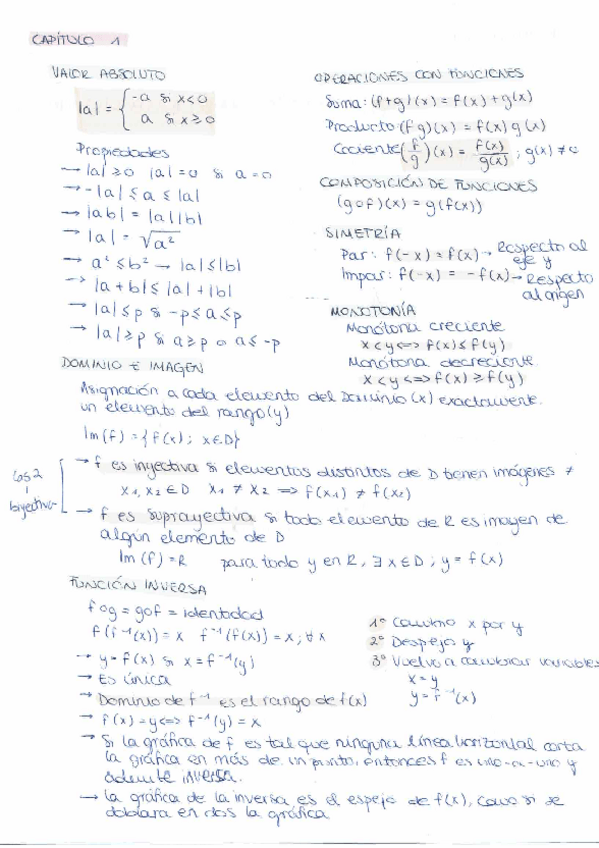 CAPÍTULO 1
VALOR ABSOLUTO
|a| = { -a si x<0
a si x≥0
Propiedades
→ |a| ≥0 |a|=0 si a=0
→ -|a| ≤ a ≤ |a|
→ |ab| = |a||b|
→ |a| = √a²
→ a² ≤ b² → |a| ≤ |b|
→ |a+b| ≤ |a|+|b|
→ |a| ≤ p si -p ≤ a ≤ p
→ |a| ≥ p si a ≥ p o a ≤ -p
OPERACIONES CON FUNCIONES
Suma: (f+g)(x) = f(x)+g(x)
Producto (f g)(x) = f(x) g(x)
Cociente (f/g)(x) = f(x)/g(x) ; g(x) ≠ 0
COMPOSICIÓN DE FUNCIONES
(g o f)(x) = g(f(x))
SIMETRÍA
Par: f(-x) = f(x) → Respecto al
eje y
Impar: f(-x) = -f(x) → Respecto
al origen
MONOTONÍA
Monótona creciente
x<y <=> f(x) ≤ f(y)
Monótona decreciente
x<y <=> f(x) ≥ f(y)
DOMINIO E IMAGEN
Asignación a cada elemento del Dominio (x) exactamente
un elemento del rango (y)
Im(f) = {f(x) ; x∈D}
Los 2
biyectiva
→ f es inyectiva si elementos distintos de D tienen imágenes ≠
x₁, x₂ ∈ D x₁ ≠ x₂ => f(x₁) ≠ f(x₂)
→ f es suprayectiva si todo elemento de R es imagen de
algún elemento de D
Im(f) = R para todo y en R, ∃ x ∈ D ; y = f(x)
FUNCIÓN INVERSA
f o g = g o f = identidad
f(f⁻¹(x)) = x f⁻¹(f(x)) = x ; ∀x
→ y = f(x) si x = f⁻¹(y)
→ Es única
→ Dominio de f⁻¹ es el rango de f(x)
→ f(x) = y <=> f⁻¹(y) = x
1º Cambio x por y
2º Despejo y
3º Vuelvo a cambiar variables
x = y
y = f⁻¹(x)
→ Si la gráfica de f es tal que ninguna línea horizontal corta
la gráfica en más de un punto, entonces f es uno-a-uno y
admite inversa.
→ la gráfica de la inversa es el espejo de f(x), como si se
doblara en dos la gráfica